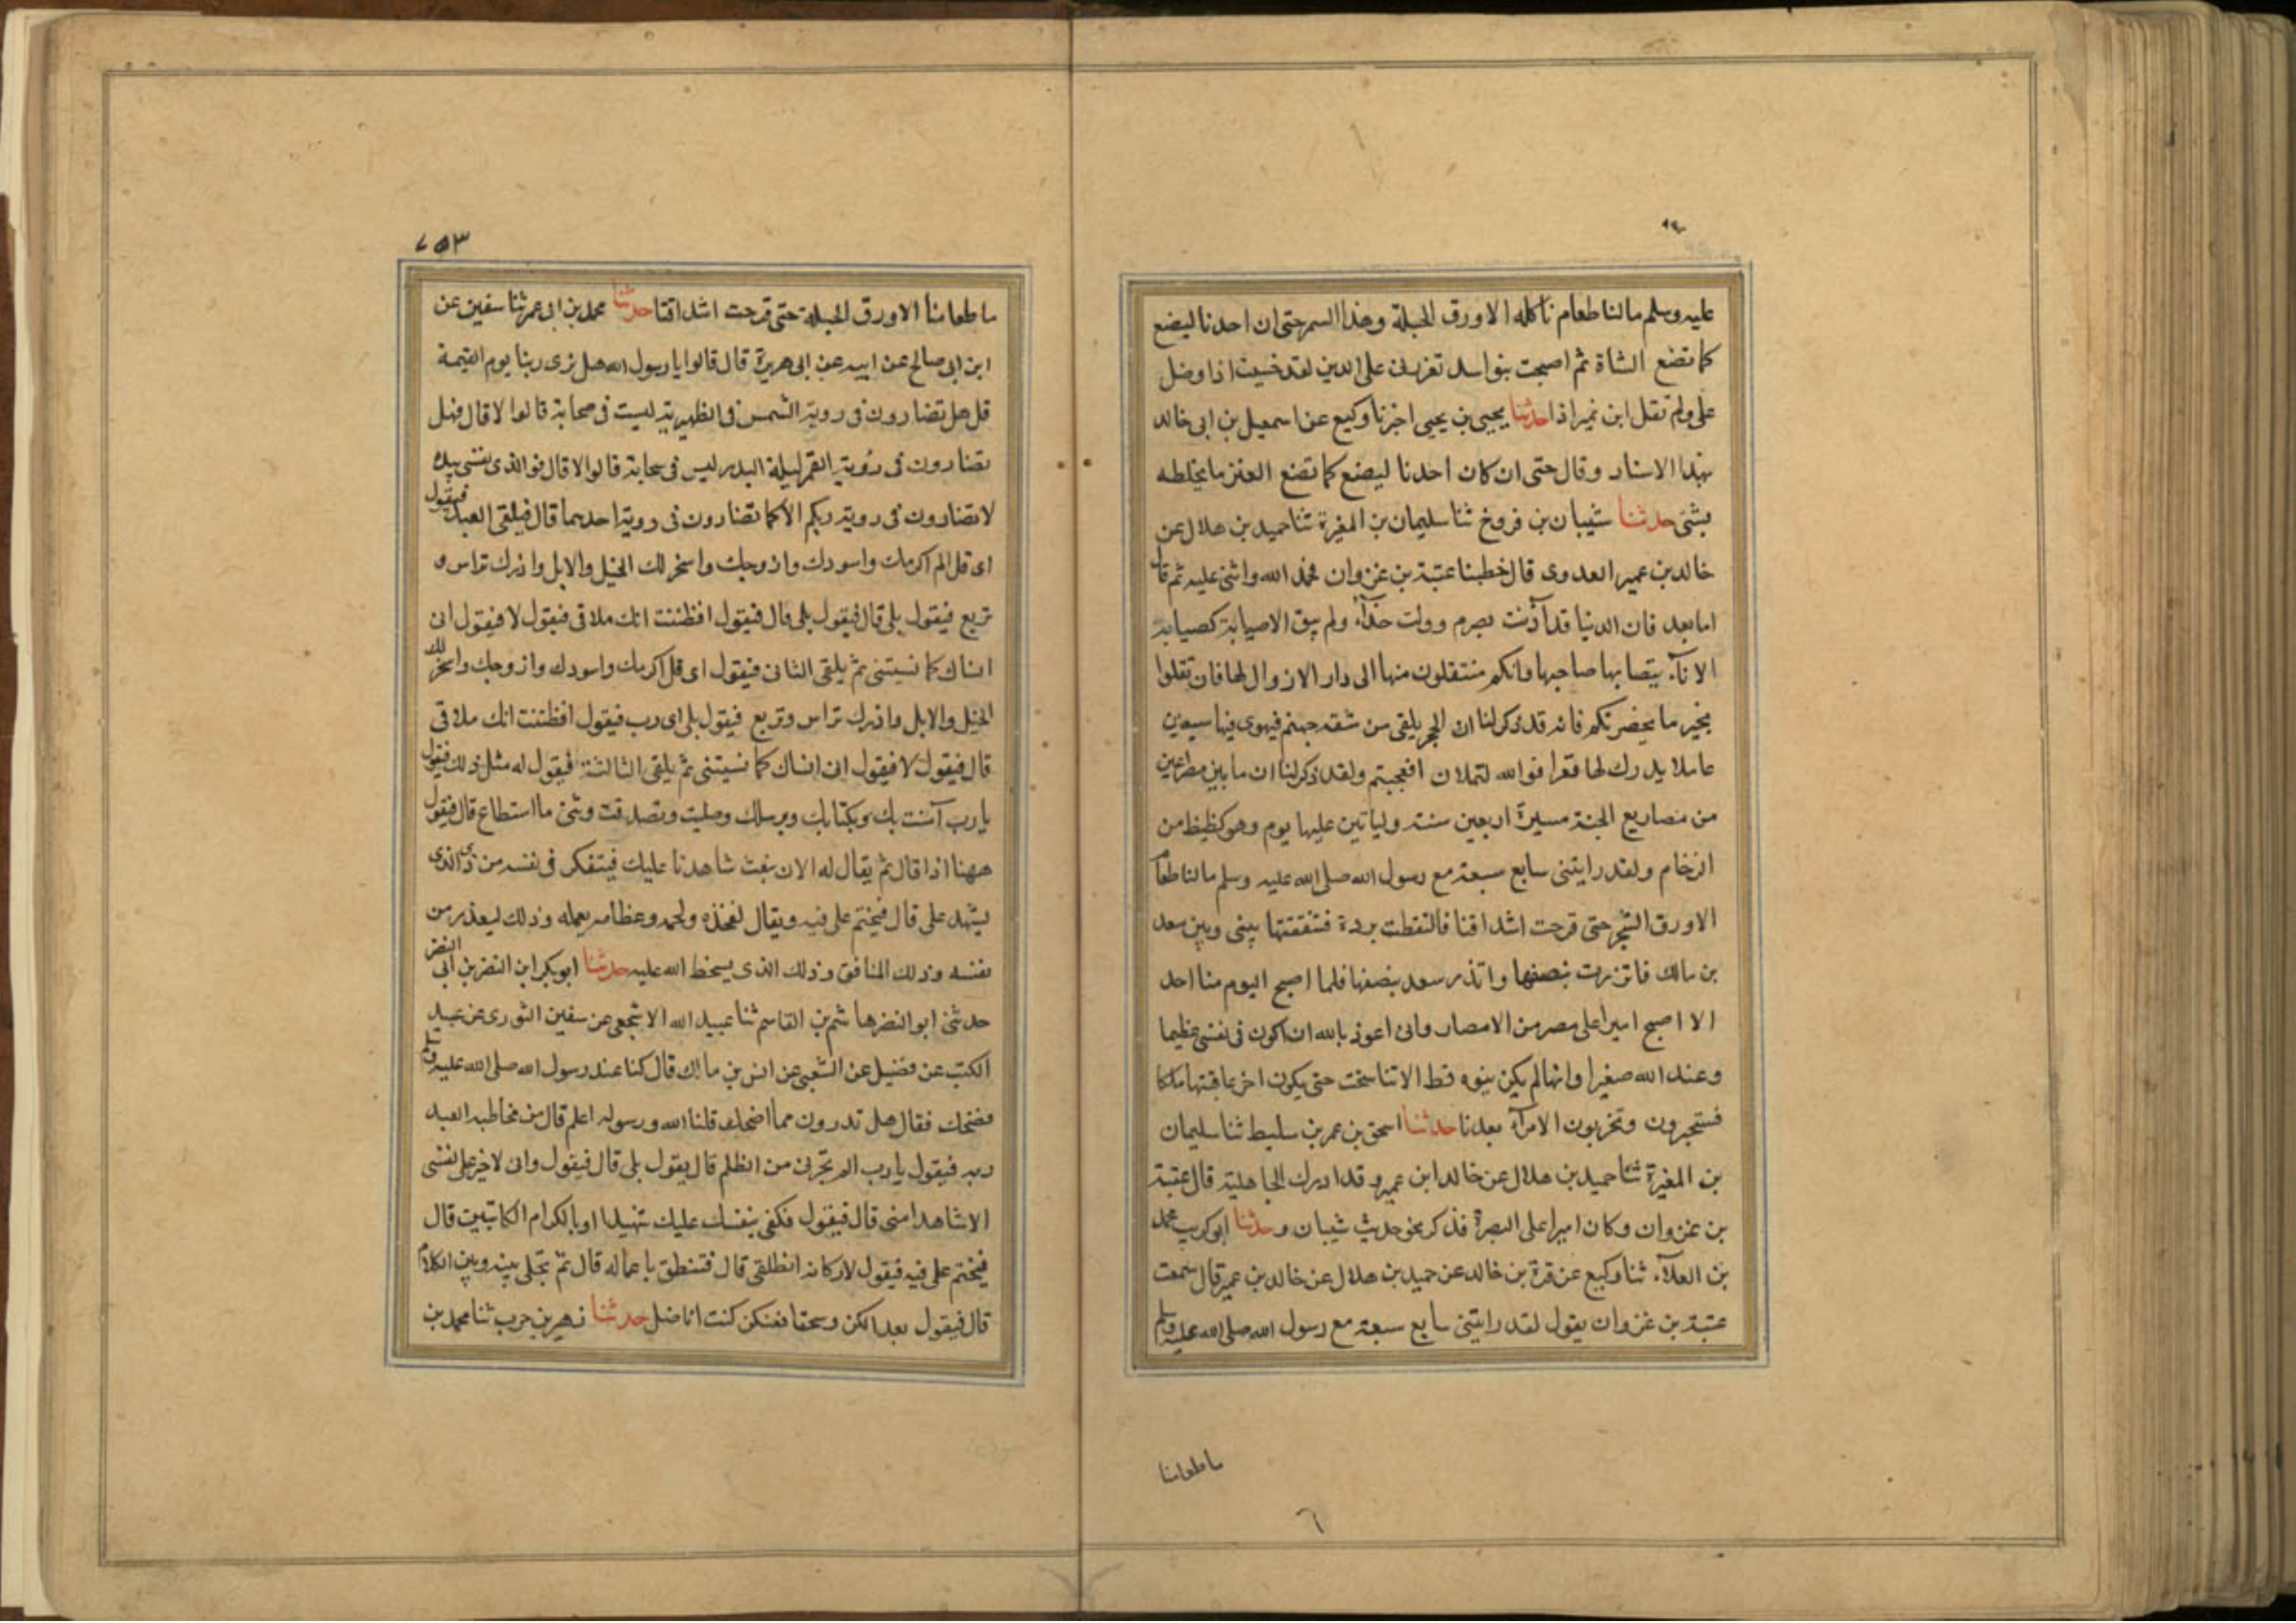 عليه وسلم مالنا طعام ناكله الا ورق الحبلة وهذا السمر حتى ان احدنا ليضع
كما تضع الشاة ثم اصبحت بنو اسد تعزرنى على الدين لقد خبت اذا وضل
على ولم تقل ابن نمير اذا حدثنا يحيى بن يحيى اخبرنا وكيع عن اسمعيل بن ابى خالد
بهذا الاسناد وقال حتى ان كان احدنا ليضع كما تضع العنز ما يخلطه
بشئ حدثنا شيبان بن فروخ ثنا سليمان بن المغيرة ثنا حميد بن هلال عن
خالد بن عمير العدوى قال خطبنا عتبة بن غزوان فحمد الله واثنى عليه ثم قال
اما بعد فان الدنيا قد آذنت بصرم وولت حذآء ولم يبق الا صبابة كصبابة
الانآء يتصابها صاحبها وانكم منتقلون منها الى دار لا زوال لها فانتقلوا
بخير ما يحضرنكم فانه قد ذكر لنا ان الحجر يلقى من شفة جهنم فيهوى فيها سبعين
عاما لا يدرك لها قعرا فوالله لتملان افعجبتم ولقد ذكر لنا ان ما بين مصراعين
من مصاريع الجنة مسيرة اربعين سنة ولياتين عليها يوم وهو كظيظ من
الزخام ولقد رايتنى سابع سبعة مع رسول الله صلى الله عليه وسلم مالنا طعام
الا ورق الشجر حتى قرحت اشداقنا فالتقطت بردة فشققتها بينى وبين سعد
بن مالك فاتزرت بنصفها واتذر سعد بنصفها فلما اصبح اليوم منا احد
الا اصبح اميرا على مصر من الامصار وانى اعوذ بالله ان اكون فى نفسى عظيما
وعند الله صغيرا وانها لم يكن بنوه قط الا تناسخت حتى يكون اخر عاقبتها ملكا
فستجبرون وتخربون الامرآء بعدنا حدثنا اسحق بن عمر بن سليط ثنا سليمان
بن المغيرة ثنا حميد بن هلال عن خالد ابن عمير وقد ادرك الجاهلية قال عتبة
بن غزوان وكان اميرا على البصرة فذكر نحو حديث شيبان وحدثنا ابو كريب محمد
بن العلآء ثنا وكيع عن قرة بن خالد عن حميد بن هلال عن خالد بن عمير قال سمعت
عتبة بن غزوان يقول لقد رايتنى سابع سبعة مع رسول الله صلى الله عليه وسلم
ما طعامنا
٦
٧٥٣
ما طعامنا الا ورق الحبلة حتى قرحت اشداقنا حدثنا محمد بن ابى عمر ثنا سفين عن
ابن ابى صالح عن ابيه عن ابى هريرة قال قالوا يا رسول الله هل نرى ربنا يوم القيمة
قل هل تضارون فى روية الشمس فى الظهيرة ليست فى سحابة قالوا لا قال فهل
تضارون فى روية القمر ليلة البدر ليس فى سحابة قالوا لا قال فوالذى نفسى بيده
لا تضارون فى روية ربكم الا كما تضارون فى روية احدهما قال فيلقى العبد فيقول
اى قل الم اكرمك واسودك وازوجك واسخر لك الخيل والابل واذرك تراس و
تربع فيقول بلى قال فيقول بلى قال فيقول افظننت انك ملاقى فيقول لا فيقول انى
انساك كما نسيتنى ثم يلقى الثانى فيقول اى قل اكرمك واسودك وازوجك واسخر لك
الخيل والابل واذرك تراس وتربع فيقول بلى اى رب فيقول افظننت انك ملاقى
قال فيقول لا فيقول انى انساك كما نسيتنى ثم يلقى الثالثة فيقول له مثل ذلك فيقول
يا رب آمنت بك وبكتابك وبرسلك وصليت وتصدقت وثنى ما استطاع قال فيقول
ههنا اذا قال ثم يقال له الان نبعث شاهدنا عليك فيتفكر فى نفسه من ذى الذى
يشهد على قال فيختم على فيه ويقال لفخذه ولحمه وعظامه بعمله وذلك ليعذر من
نفسه وذلك المنافق وذلك الذى يسخط الله عليه حدثنا ابو بكر ابن النضر بن ابى النضر
حدثنى ابو النضر هاشم بن القاسم ثنا عبيد الله الاشجعى عن سفين الثورى عن عبيد
الكتب عن فضيل عن الشعبى عن انس بن مالك قال كنا عند رسول الله صلى الله عليه وسلم
فضحك فقال هل تدرون مما اضحك قلنا الله ورسوله اعلم قال من مخاطبة العبد
ربه فيقول يا رب الم تجرنى من الظلم قال يقول بلى قال فيقول وانى لا اخير على نفسى
الا شاهدا منى قال فيقول فكفى بنفسك عليك شهيدا او بالكرام الكاتبين قال
فيختم على فيه فيقول لاركانه انطلقى قال فتنطق باعماله قال ثم تجلى بينه وبين الكلام
قال فيقول بعدا لكن وسحقا فعنكن كنت اناضل حدثنا زهير بن حرب ثنا محمد بن